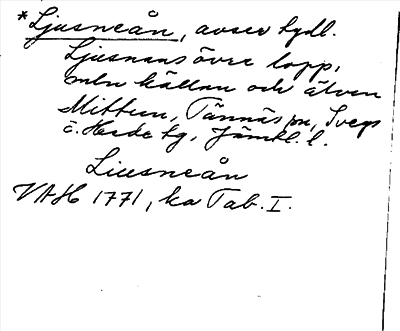 *Ljusneån, avser tydl.
Ljusnans övre lopp,
mln källan och älven
Mittån, Tännäs sn, Svegs
o. Hede tg, Jämtl. l.
Liusneån
VAH 1771, ka Tab. I.